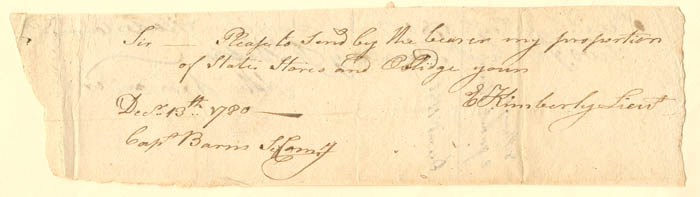 Sir — Please to Send by the bearer my proportion
of State Stores and Oblidge yours
E Kimberly Lieut
Decr 13th 1780 —
Capt Barns